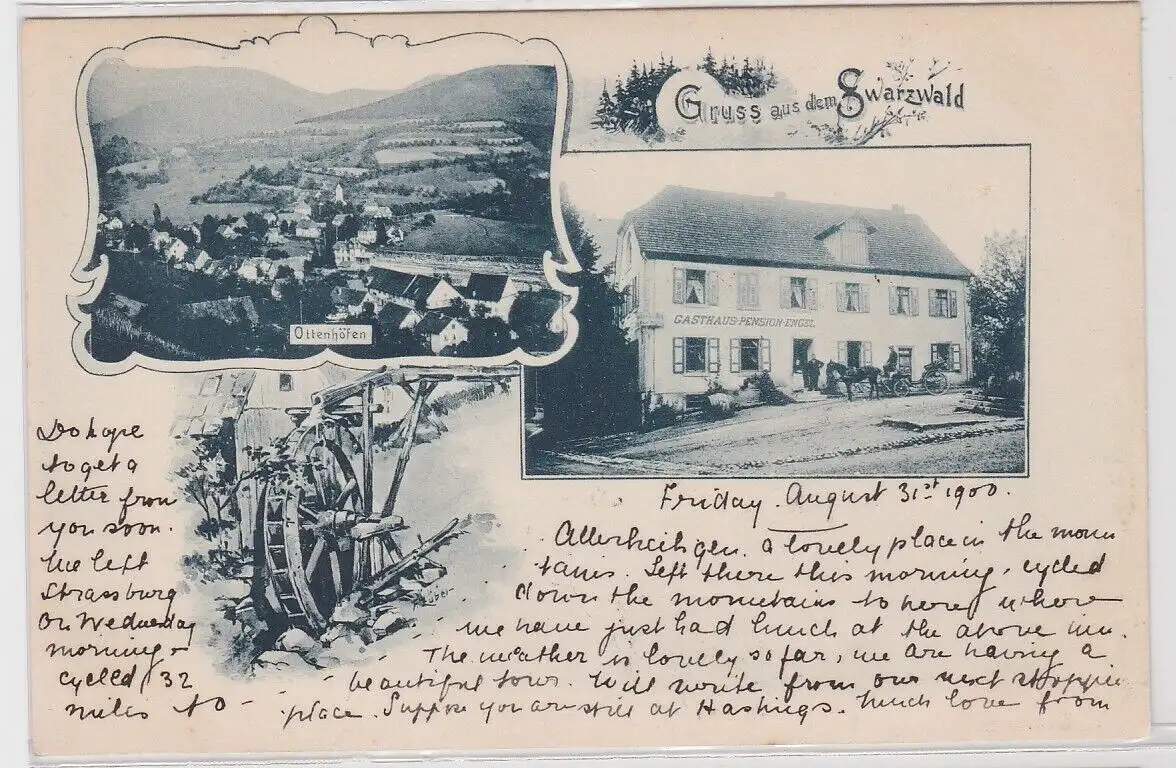 Gruss aus dem Swarzwald
Ottenhöfen
GASTHAUS-PENSION-ENGEL
Friday. August 31st 1900.
Do hope
to get a
letter from
you soon.
We left
Strassburg
on Wednesday
morning
cycled 32
miles to -
Allerheiligen. a lovely place in the moun
tains. Left there this morning, cycled
down the mountains to here, where
we have just had lunch at the above inn.
The weather is lovely so far, we are having a
beautiful tour. Will write from our next stoppin
place. Suppose you are still at Hastings. Much love from